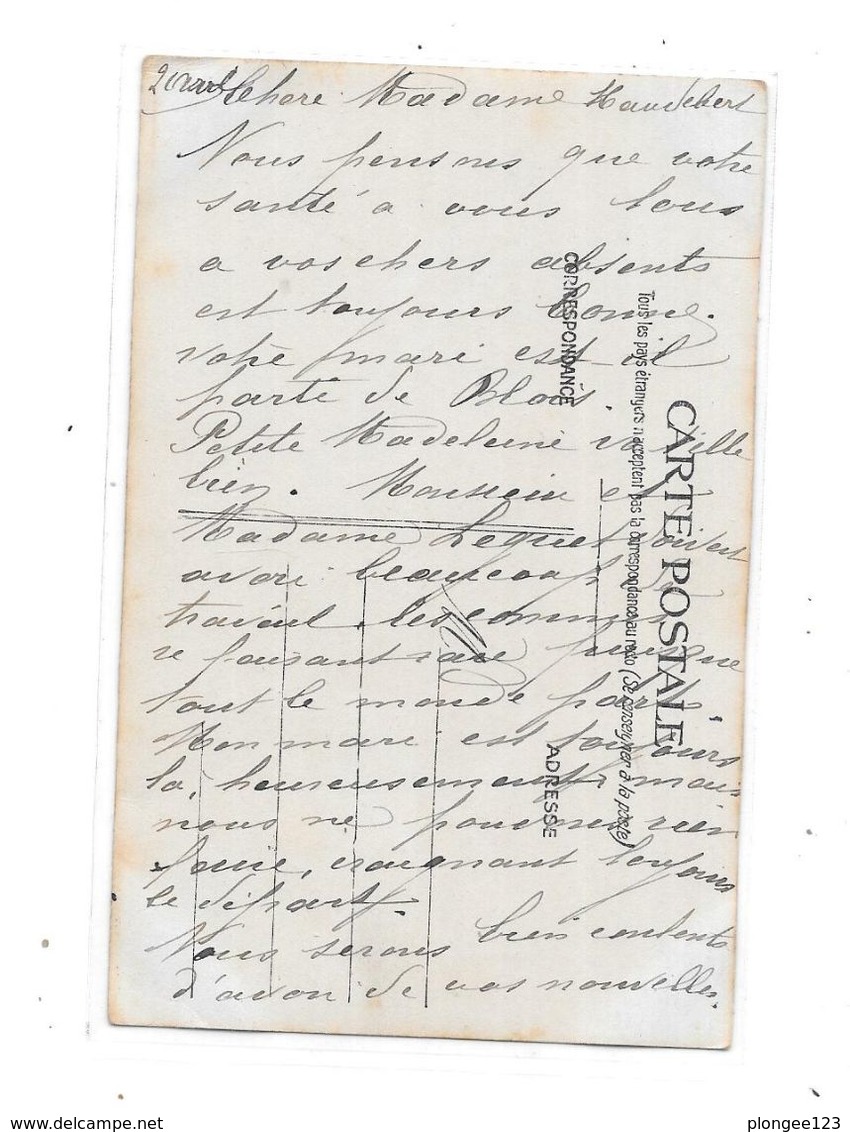 2 avril Chere Madame Haudebert
Nous pensons que votre
santé a vous tous
a vos chers absents
est toujours bonne.
votre mari est il
parti de Blois.
Petite Madeleine va t'elle
bien. Monsieur et
Madame Leguet doivent
avoir beaucoup de
travail les commis
se faisant rare puisque
tout le monde part.
Mon mari est toujours
la, heureusement, mais
nous ne pouvons rien
faire, craignant toujours
le départ.
Nous serons bien contents
d'avoir de vos nouvelles.
CARTE POSTALE
Tous les pays étrangers n'acceptent pas la correspondance au recto (Se renseigner à la poste)
CORRESPONDANCE
ADRESSE
delcampe.net
plongee123